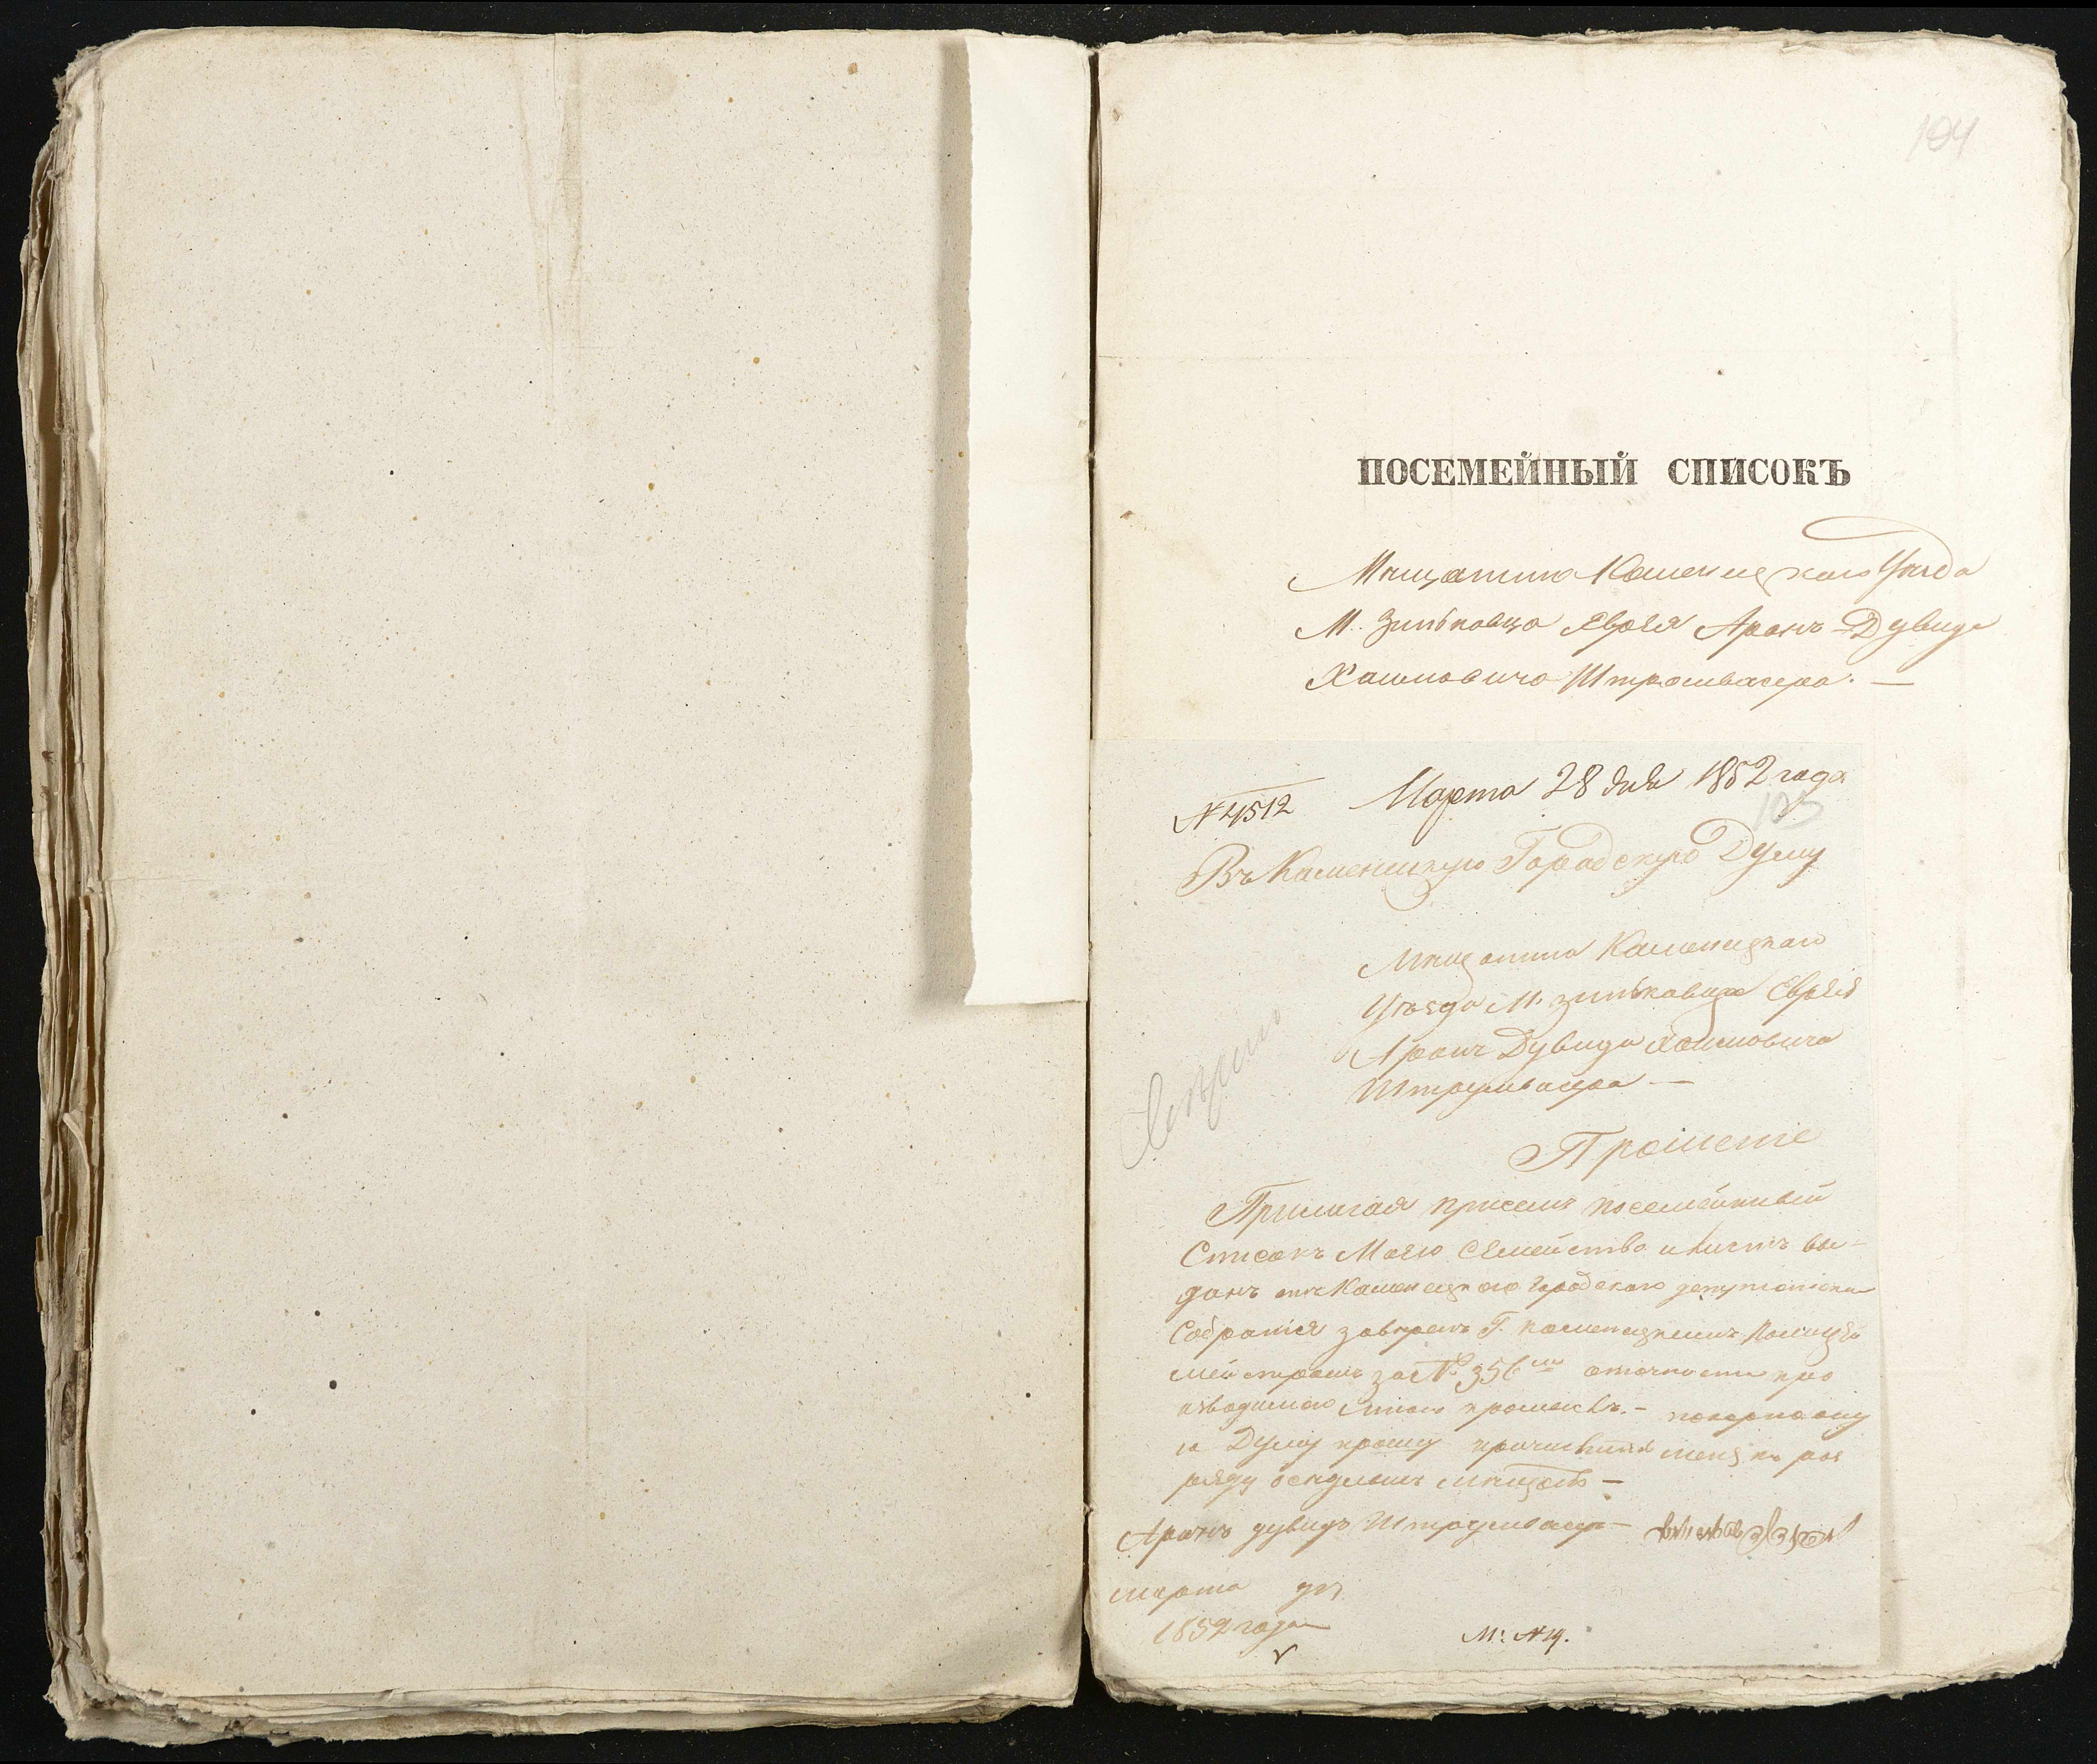 104
ПОСЕМЕЙНЫЙ СПИСОКЪ
Мѣщанина Каменецкаго Уѣзда
М. Зинькавца Еврея Аронъ-Дувида
Хаимовича Штромвасера. —
N 4512 Марта 28 дня 1852 года
105
Въ Каменецкую Городскую Думу
Мѣщанина Каменецкаго
Уѣзда М. Зинькавца Еврея
Аронъ Дувида Хаимовича
Штромвасера —
Прошеніе
Прилагая присемъ посемейный
Списокъ Моего Семейства и листъ вы-
данъ отъ Каменецкого Городскаго депутатскаго
Собранія завѣренъ Г. Каменецкимъ Полицей
мейстромъ за № 356 про
изводимаго мною
Думу прошу меня къ раз
ряду осѣдлыхъ мѣщанъ —
Аронъ дувидъ Штромвасеръ —
марта дня
1852 года
М: N 14.